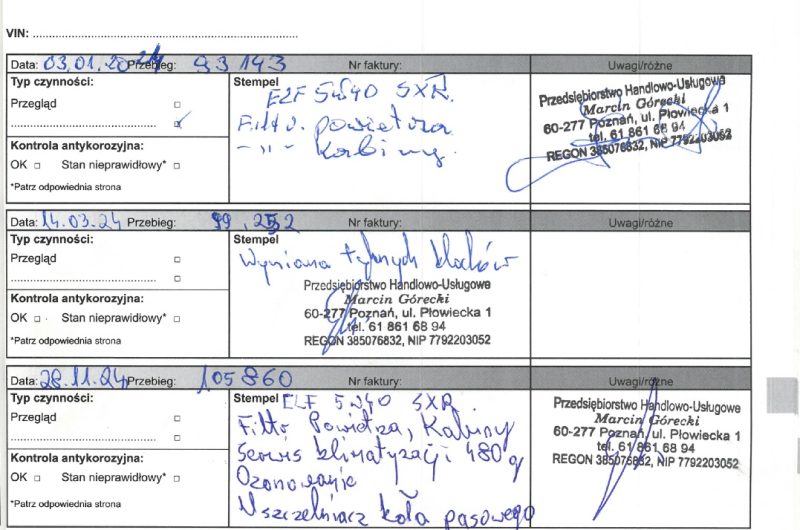 VIN: ..............................................................................
Data: 03.01.2024 Przebieg: 93143 Nr faktury: Uwagi/różne
Typ czynności:
Przegląd □
.................................................. □
Kontrola antykorozyjna:
OK □ Stan nieprawidłowy* □
*Patrz odpowiednia strona
Stempel
ELF 5W40 SXR.
Filtr. powietrza
-"- Kabiny.
Przedsiębiorstwo Handlowo-Usługowe
Marcin Górecki
60-277 Poznań, ul. Płowiecka 1
tel. 61 861 68 94
REGON 385076832, NIP 7792203052
Data: 14.03.24 Przebieg: 99,252 Nr faktury: Uwagi/różne
Typ czynności:
Przegląd □
.................................................. □
Kontrola antykorozyjna:
OK □ Stan nieprawidłowy* □
*Patrz odpowiednia strona
Stempel
Wymiana tylnych klocków
Przedsiębiorstwo Handlowo-Usługowe
Marcin Górecki
60-277 Poznań, ul. Płowiecka 1
tel. 61 861 68 94
REGON 385076832, NIP 7792203052
Data: 28.11.24 Przebieg: 105860 Nr faktury: Uwagi/różne
Typ czynności:
Przegląd □
.................................................. □
Kontrola antykorozyjna:
OK □ Stan nieprawidłowy* □
*Patrz odpowiednia strona
Stempel ELF 5W40 SXR
Filtr Powietza, Kabiny
Serwis klimatyzacji 480 g
Ozonowanie
Uszczelniacz koła pasowego
Przedsiębiorstwo Handlowo-Usługowe
Marcin Górecki
60-277 Poznań, ul. Płowiecka 1
tel. 61 861 68 94
REGON 385076832, NIP 7792203052